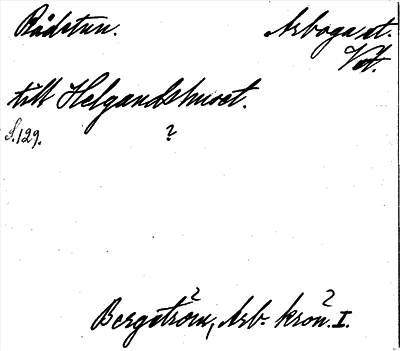 Rådstun. Arboga st.
Vstm.
till Helgandshuset.
S. 129. ?
Bergström, Arb. krön. I.